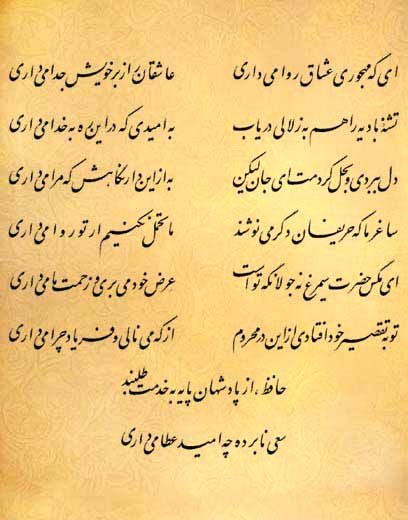 ای که مهجوری عشاق روا می داری    عاشقان را ز بر خویش جدا می داری
تشنه بادیه را هم به زلالی دریاب    به امیدی که در این ره به خدا می داری
دل ببردی و بحل کردمت ای جان لیکن    به از این دار نگاهش که مرا می داری
ساغر ما که حریفان دگر می نوشند    ما تحمل نکنیم ار تو روا می داری
ای مگس حضرت سیمرغ نه جولانگه تو است    عرض خود می بری و زحمت ما می داری
تو به تقصیر خود افتادی از این در محروم    از که می نالی و فریاد چرا می داری
حافظ ، از پادشهان پایه به خدمت طلبند
سعی نابرده چه امید عطا می داری